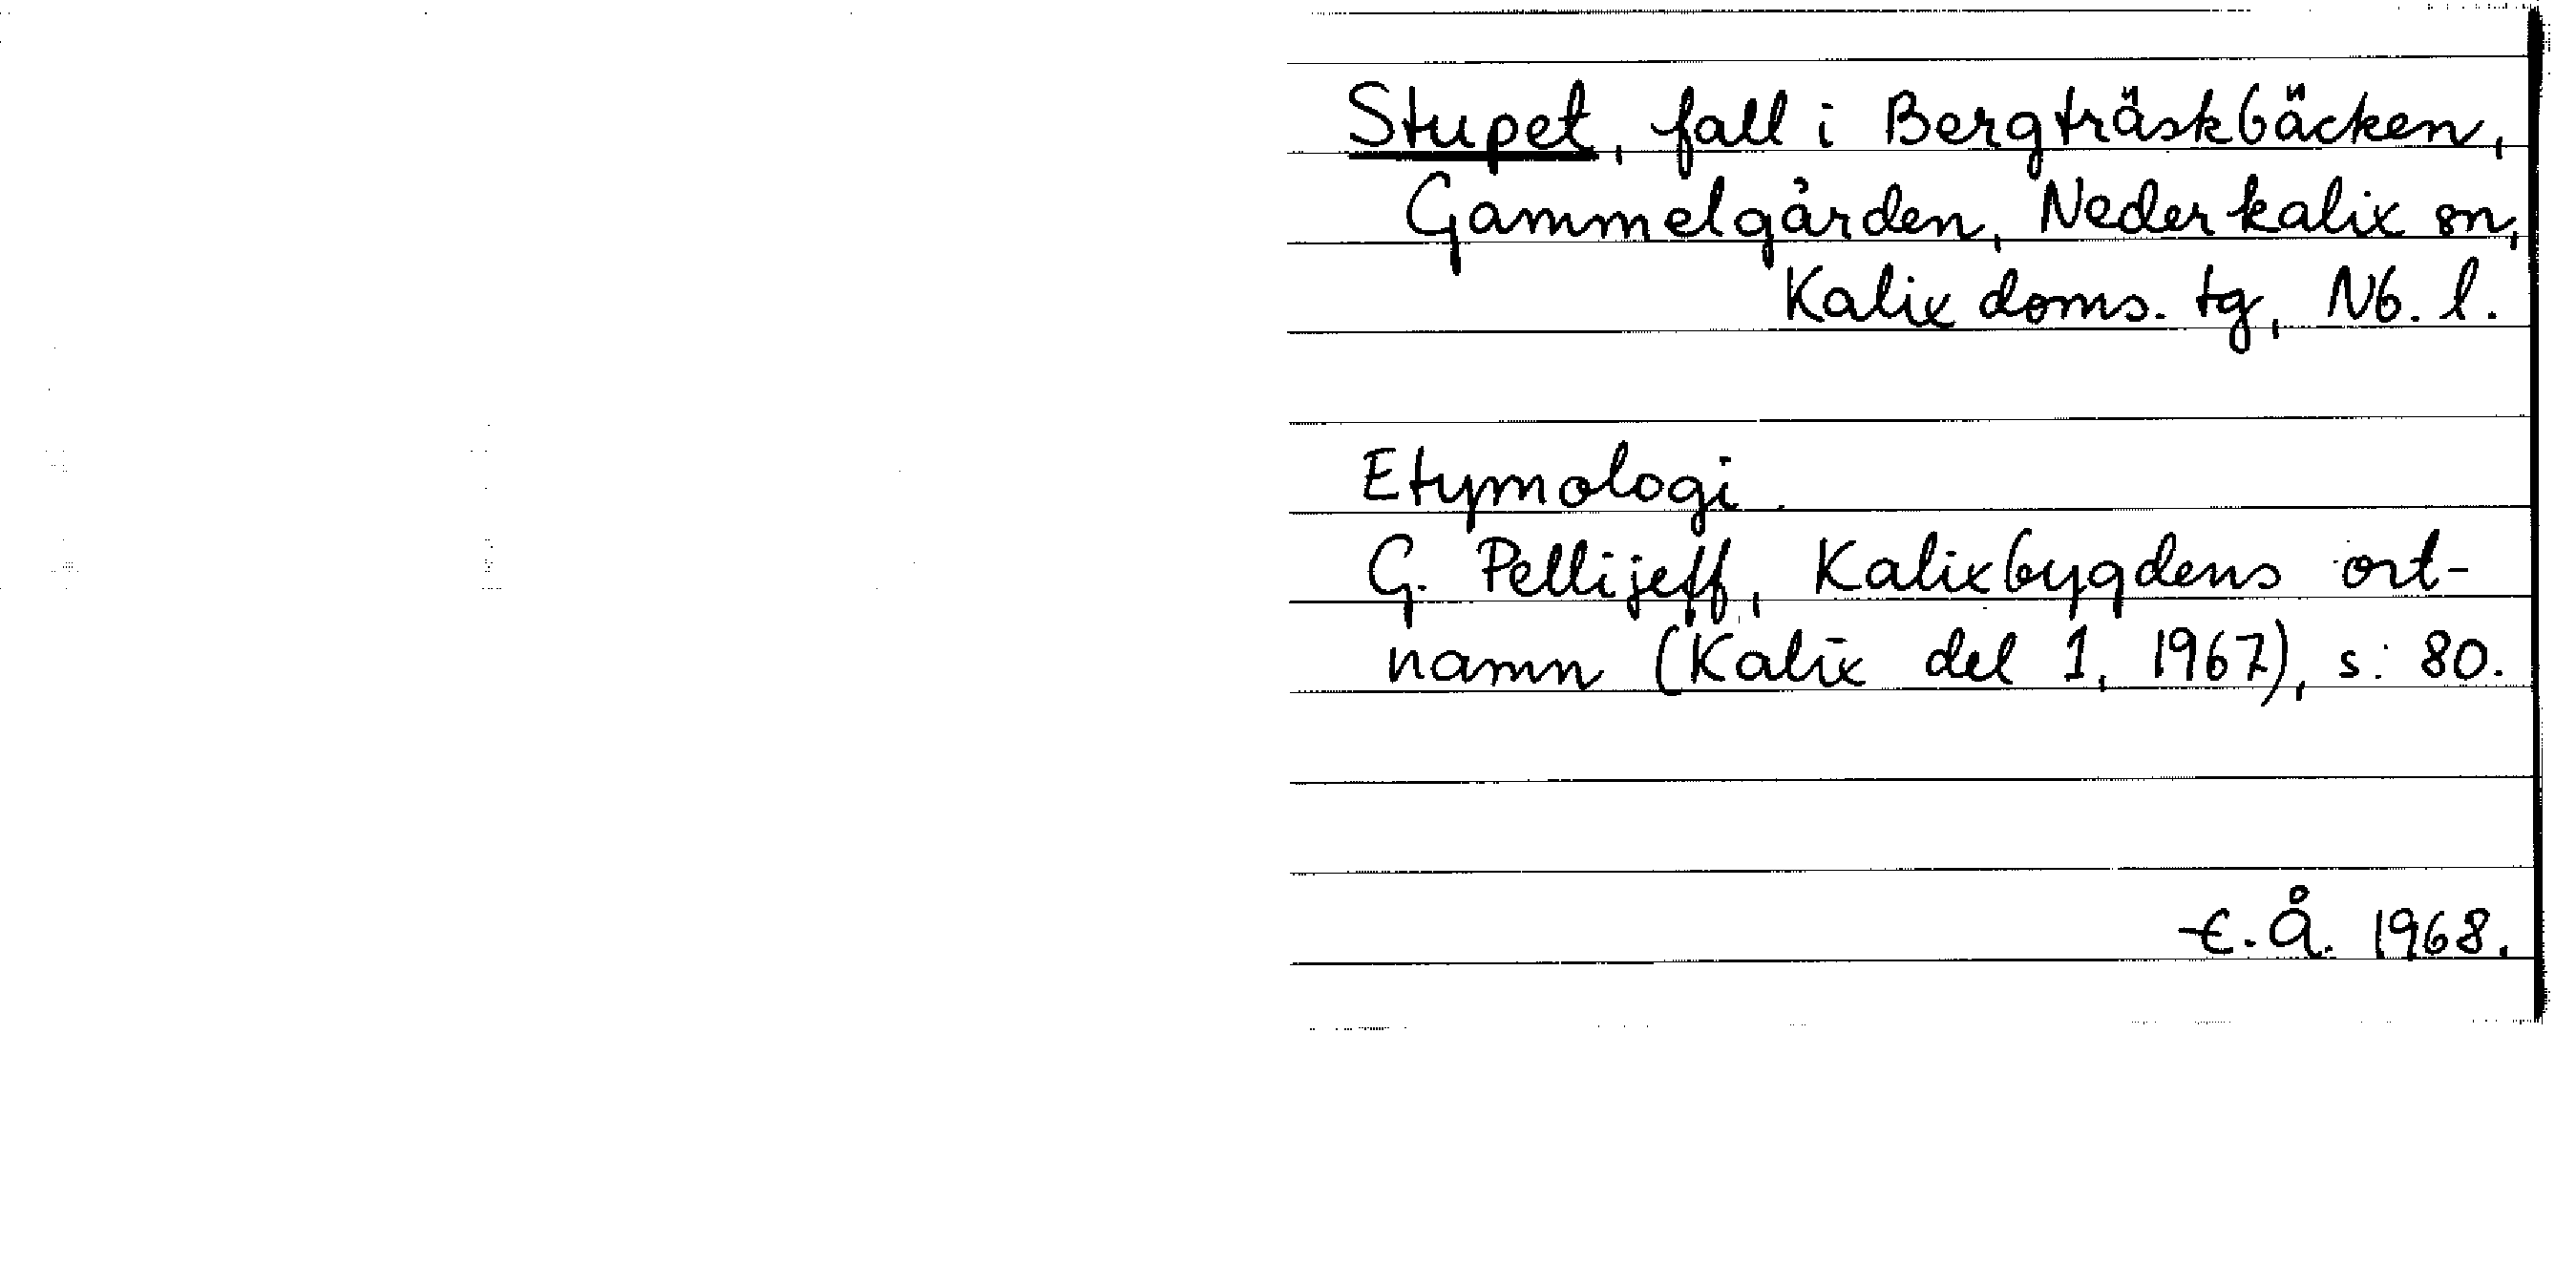 Stupet, fall i Bergträskbäcken,
Gammelgården, Nederkalix sn,
Kalix doms. tg, Nb. l.
Etymologi.
G. Pellijeff, Kalixbygdens ort-
namn (Kalix del 1, 1967), s. 80.
E. Å. 1968.